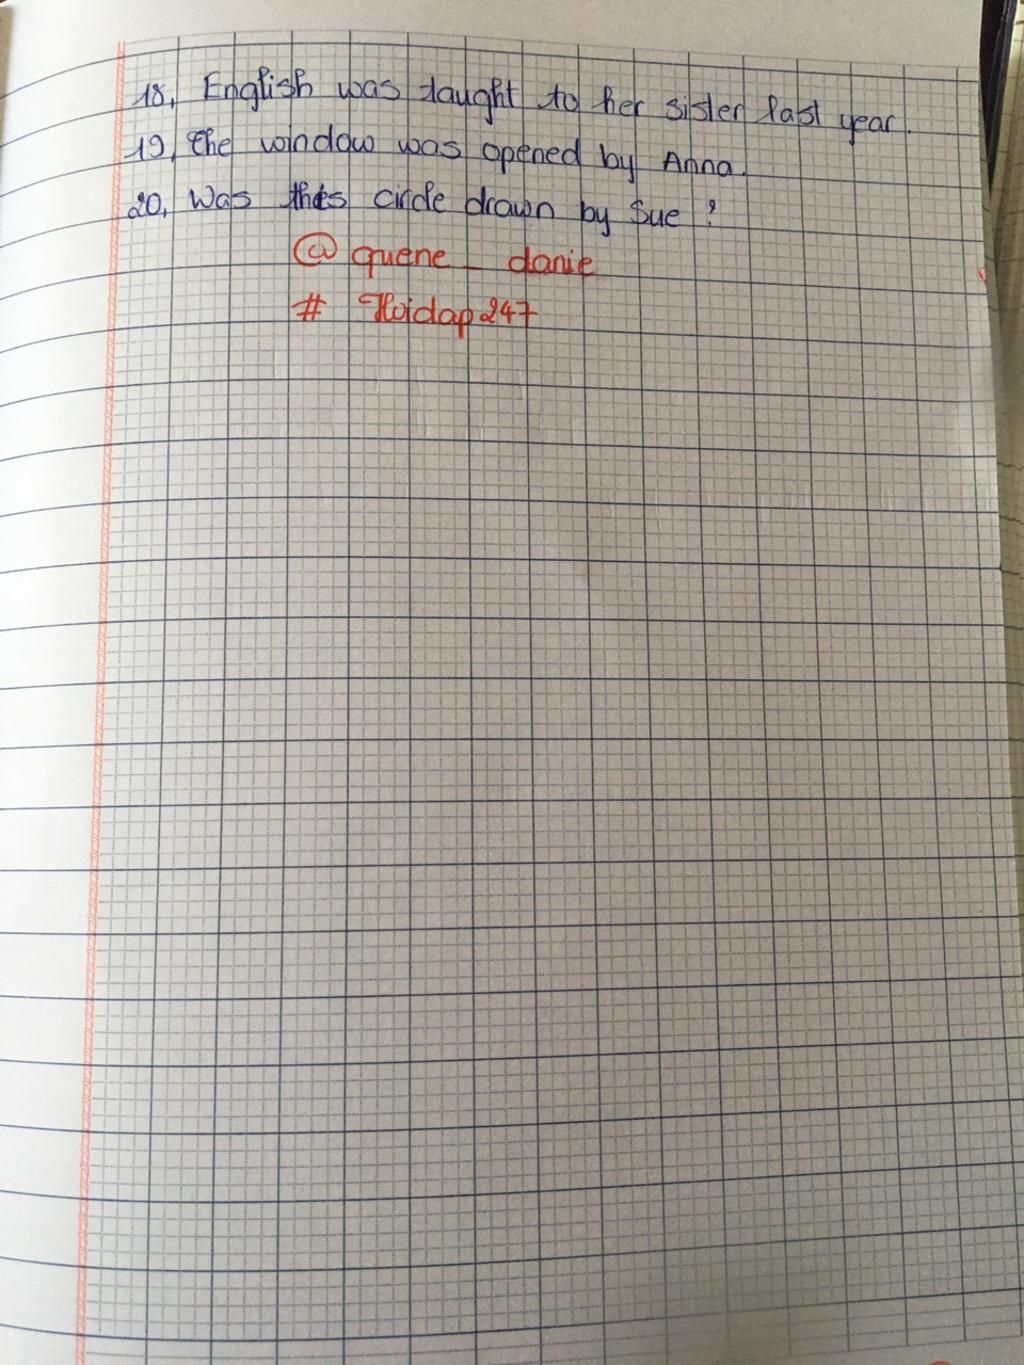 18, English was taught to her sister last year.
19, The window was opened by Anna.
20, Was this circle drawn by Sue ?
@ quene _ danie
# Hoidap247